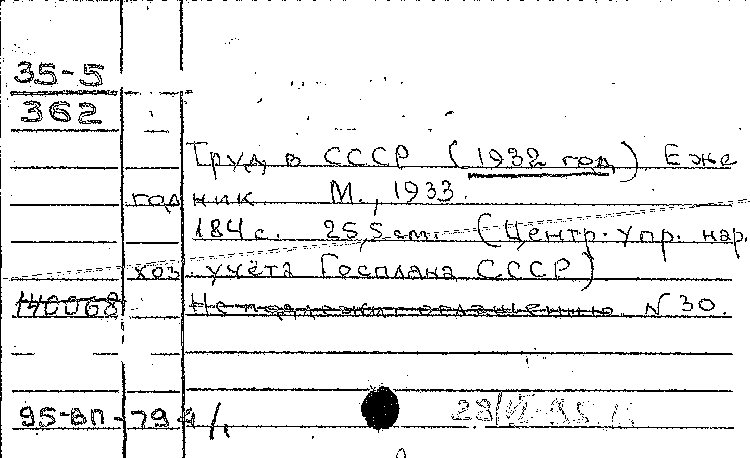 35-5
362
Труд в СССР (1932 год) Еже
годник М., 1933.
184 с. 25,5 cm. (Центр. упр. нар.
хоз. учёта Госплана СССР)
140068 Не подлежит оглашению N 30.
95-ВП-794/1